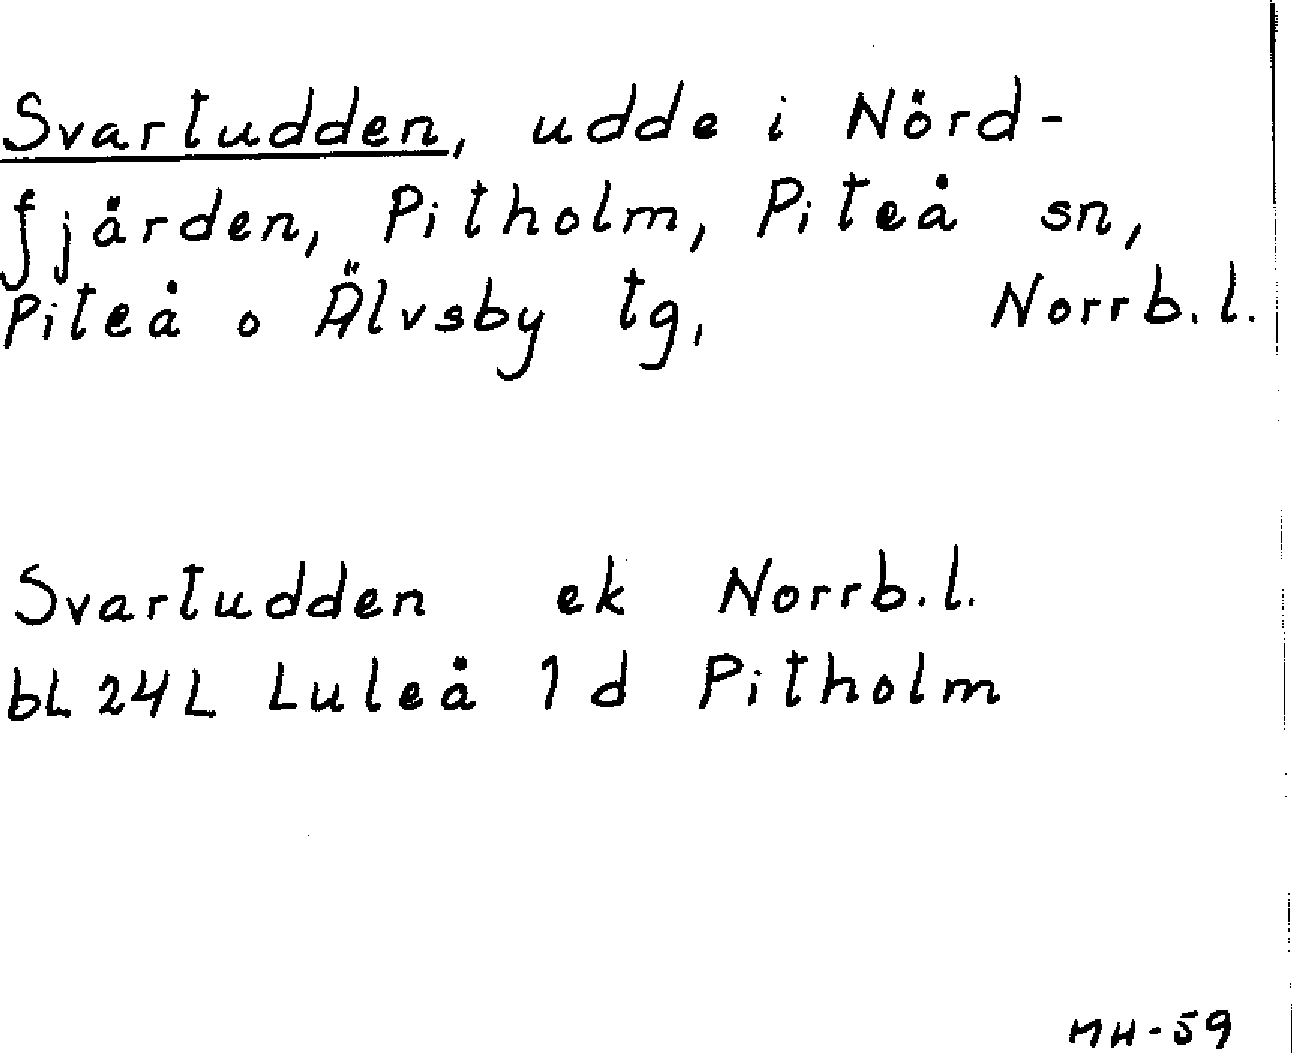 Svartudden, udde i Nörd-
fjärden, Pitholm, Piteå sn,
Piteå o Älvsby tg, Norrb.l.
Svartudden ek Norrb.l.
bL 24L Luleå 1d Pitholm
MH-59